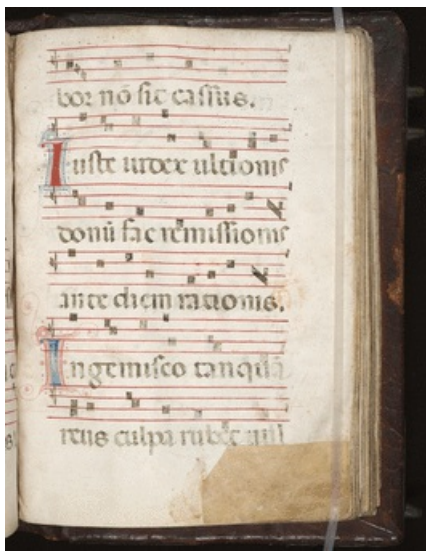 bor nō sit cassus.
Iuste iudex ultionis
donū fac remissionis
ante diem rationis.
Ingemisco tanquā
reus culpa rubet uul